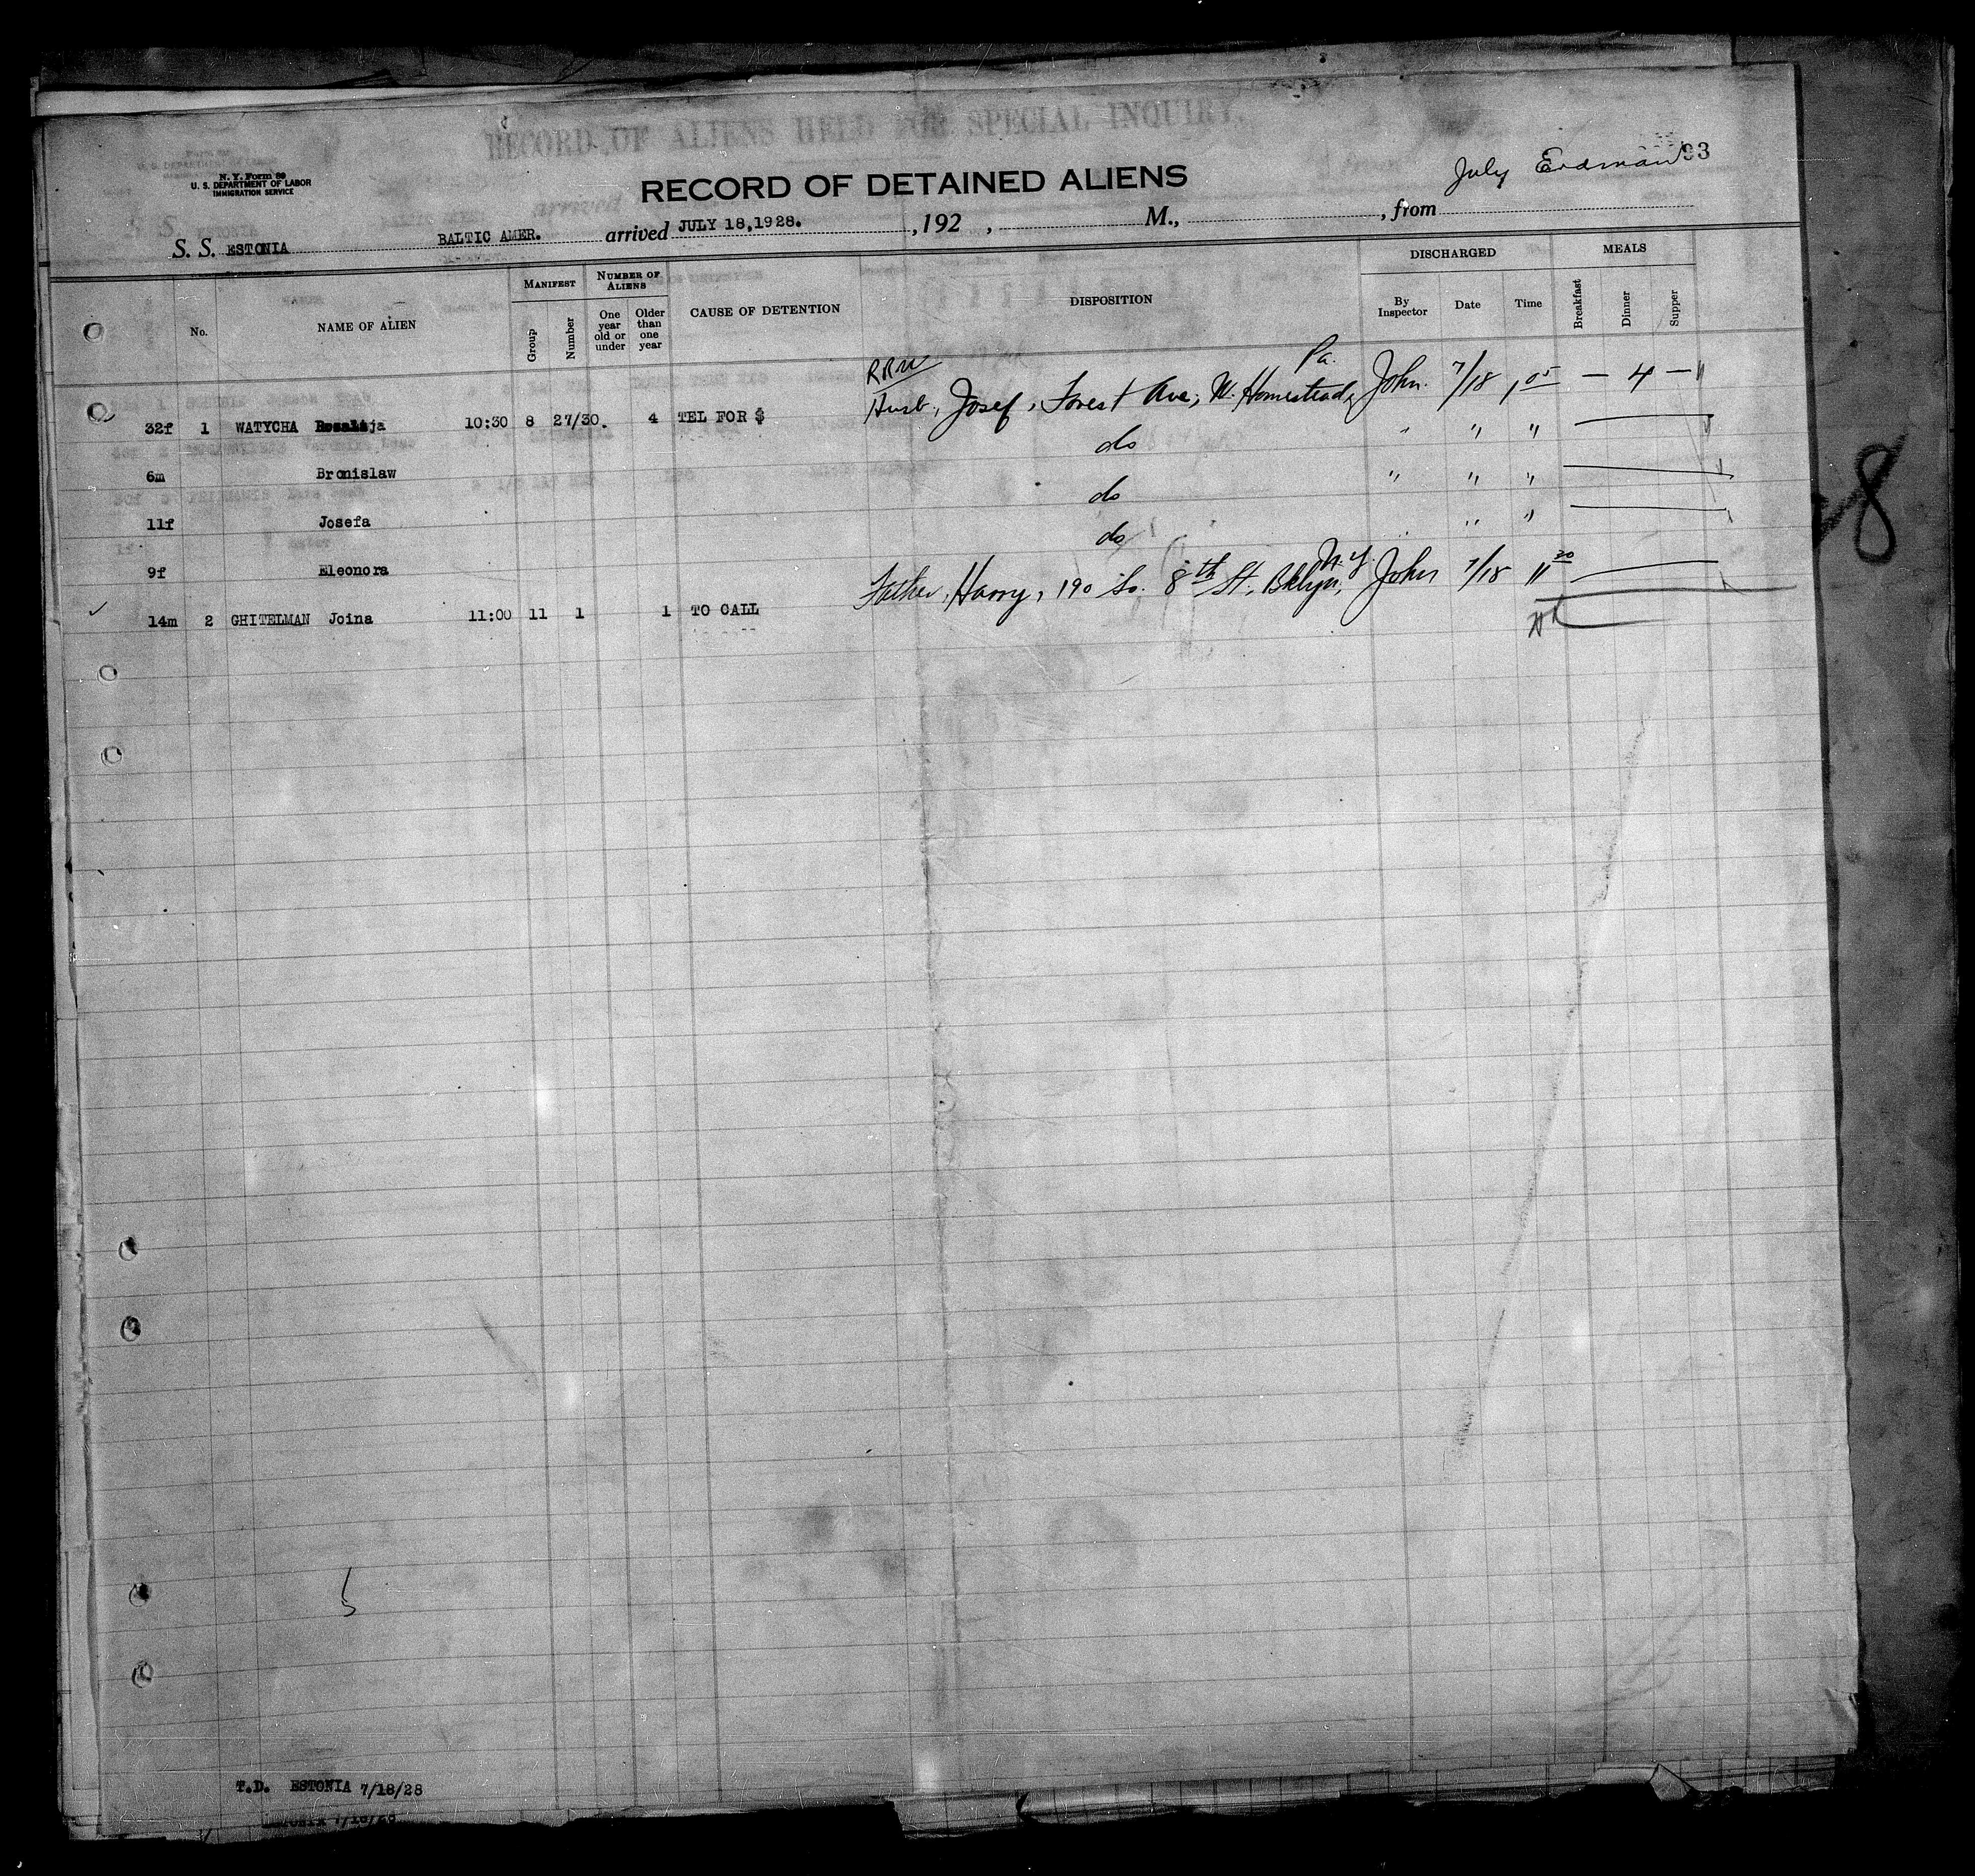 RECORD OF ALIENS HELD FOR SPECIAL INQUIRY.
N. Y. Form 89
U. S. DEPARTMENT OF LABOR
IMMIGRATION SERVICE
RECORD OF DETAINED ALIENS
July Erdman 93
S. S. ESTONIA BALTIC AMER. arrived JULY 18,1928. , 192 , M., , from
No. NAME OF ALIEN MANIFEST Group Number NUMBER OF ALIENS One year old or under Older than one year CAUSE OF DETENTION DISPOSITION DISCHARGED By Inspector Date Time MEALS Breakfast Dinner Supper
RRW Pa.
32f 1 WATYCHA Rosalija 10:30 8 27/30. 4 TEL FOR $ Husb, Josef, Forest Ave, W. Homestead, John. 7/18 1 05 — 4 —
6m Bronislaw do " " "
11f Josefa do " " "
9f Eleonora do " "
14m 2 GHITELMAN Joina 11:00 11 1 1 TO CALL Father, Harry, 190 So. 8th St, Bklyn, N.Y. John 7/18 11 20
T.D. ESTONIA 7/18/28
ESTONIA 7/18/28